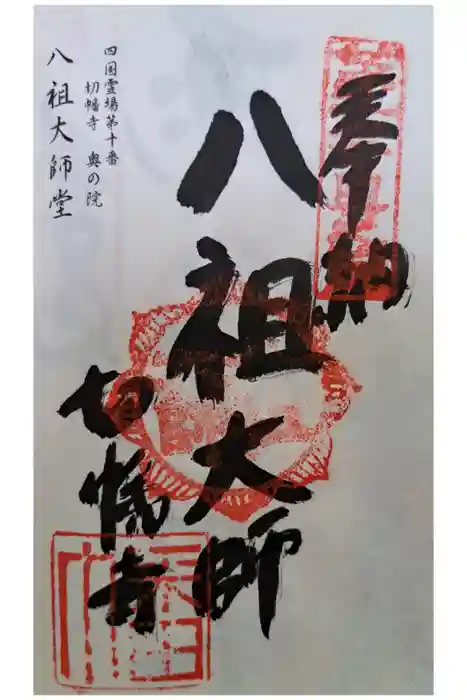 奉納
八祖大師
切幡寺
四国霊場第十番
切幡寺 奥の院
八祖大師堂